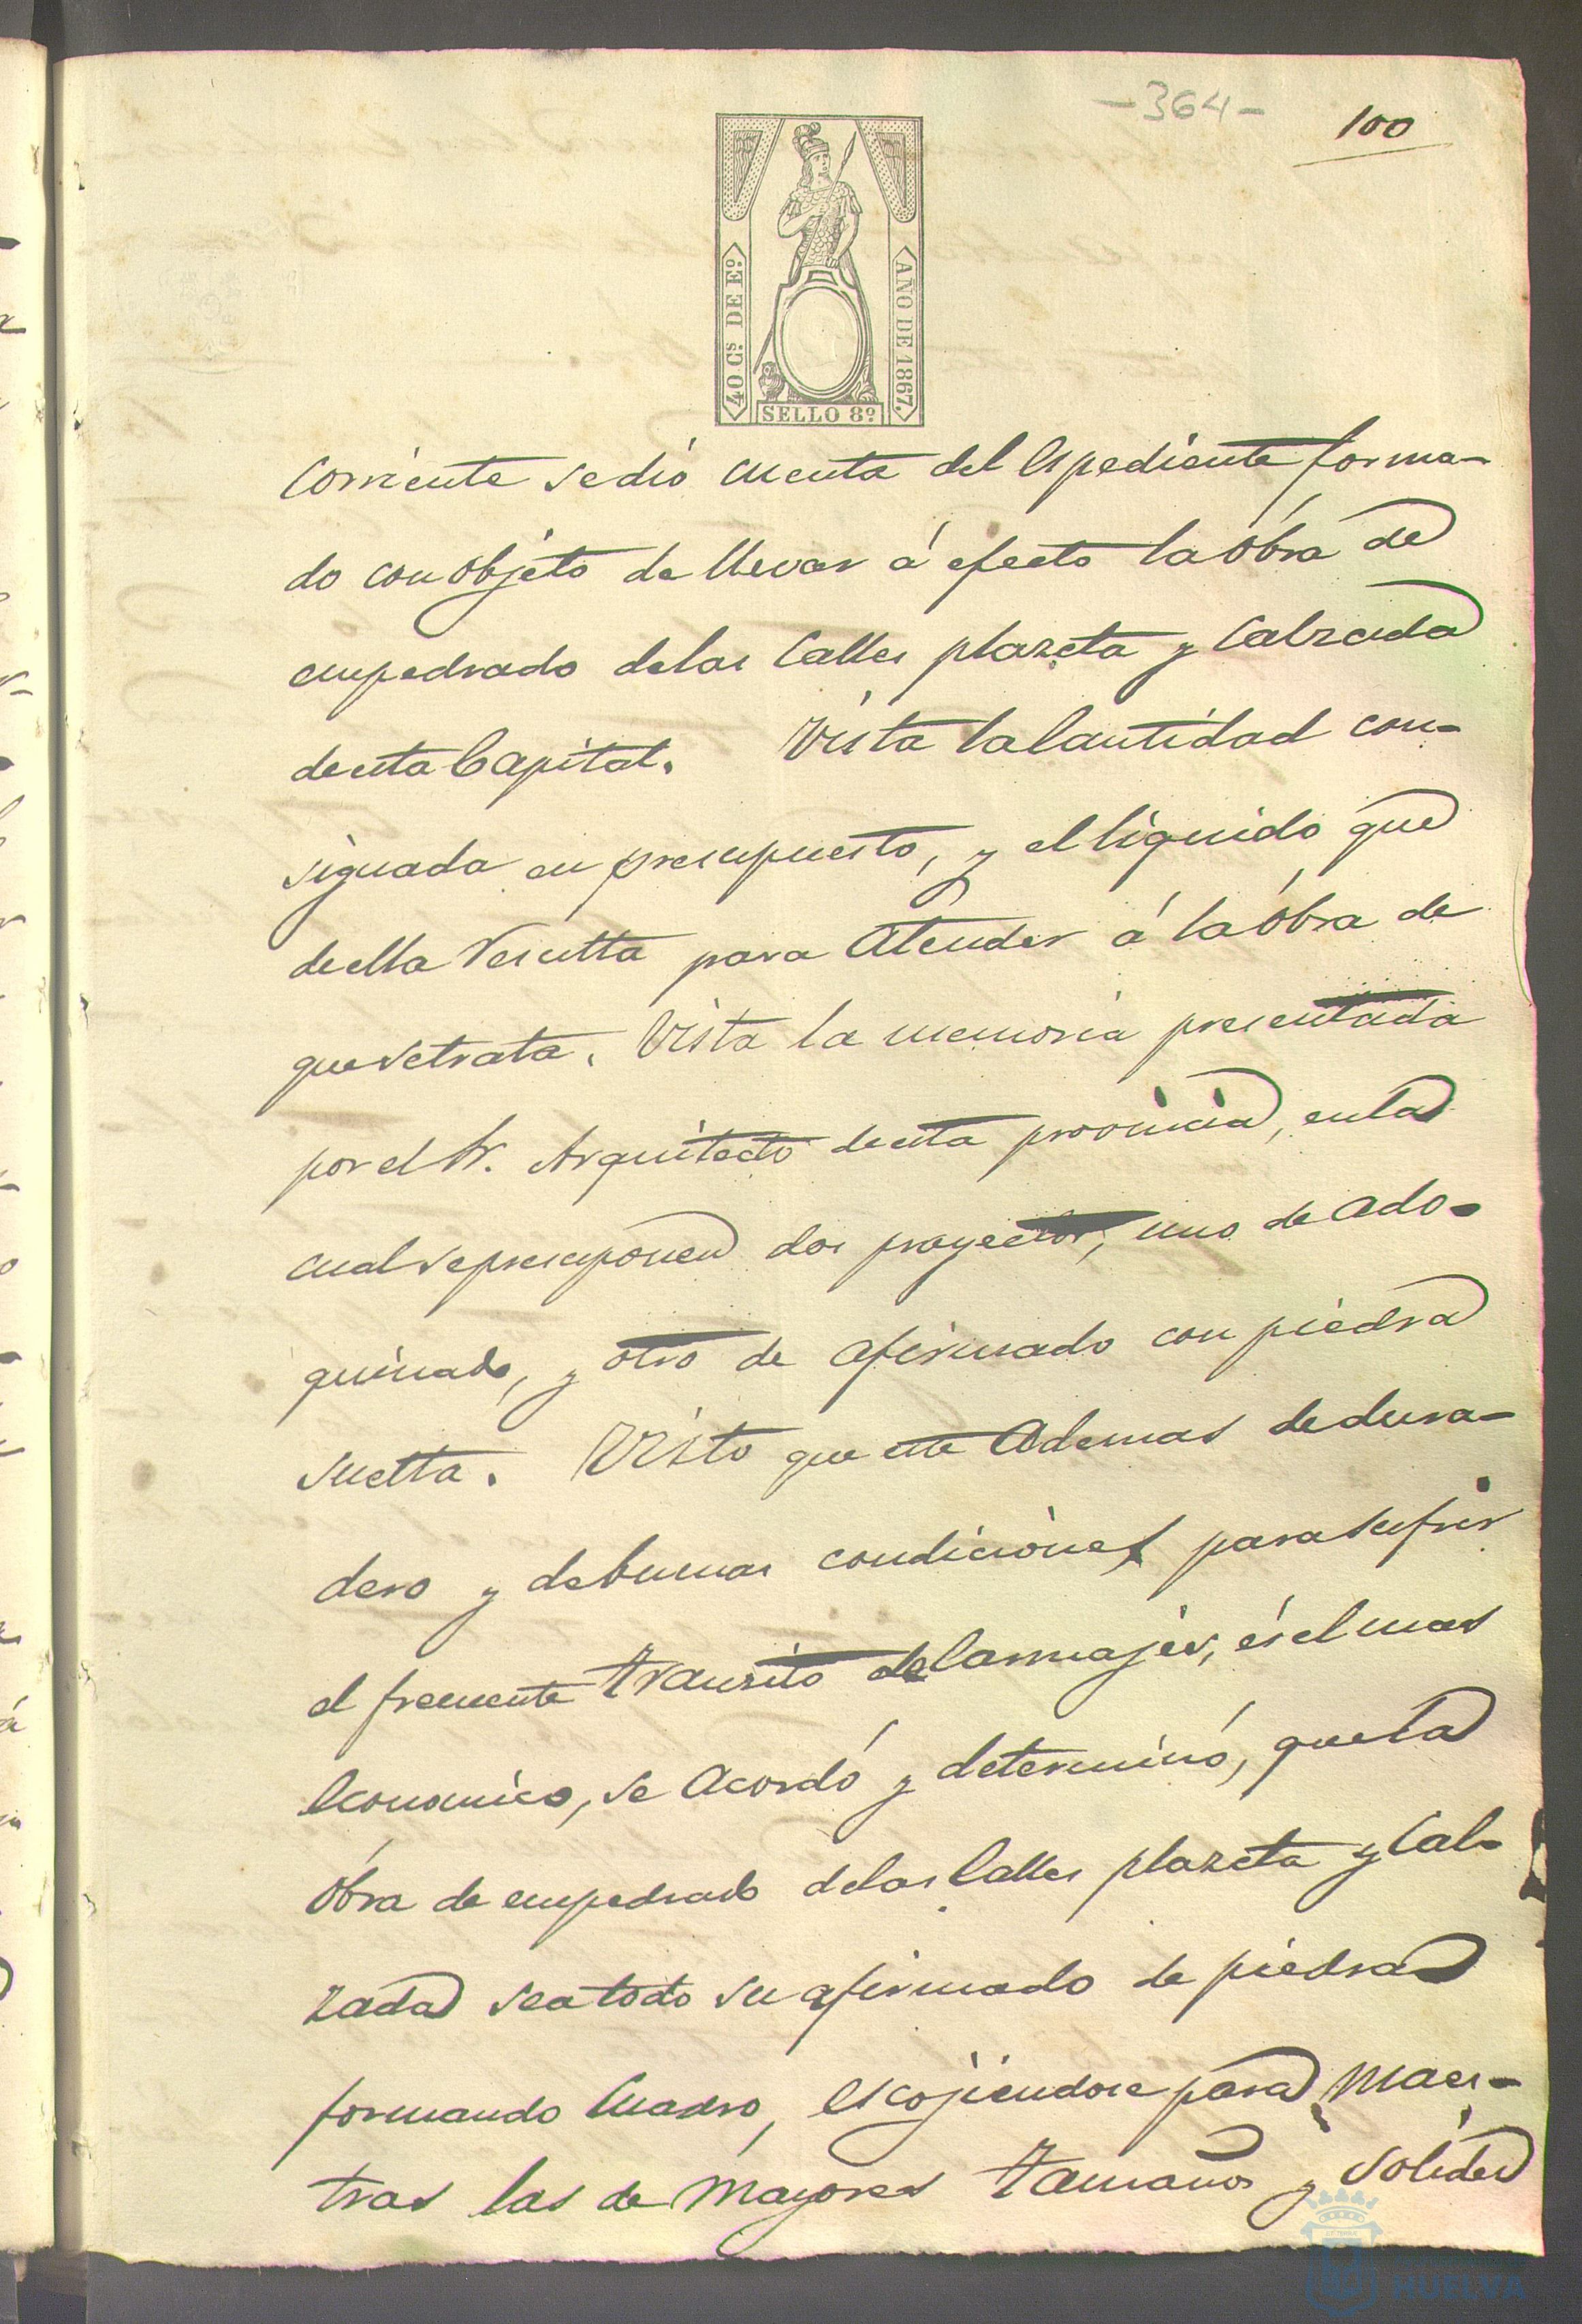 -364-
100
40 Cs. DE Eo.
AÑO DE 1867.
SELLO 8º
Corriente se dió cuenta del Espediente forma-
do con objeto de llevar á efecto la obra de
empedrado de las Calles plazeta y Calzada
de esta Capital. Vista la Cantidad con-
signada en presupuesto, y el liquido que
de ella resulta para Atender á la obra de
que se trata. Vista la memoria presentada
por el Sr. Arquitecto de esta provincia, en la
cual se presuponen dos proyectos, uno de Ado-
quinado, y otro de afirmado con piedra
suelta. Visto que este Ademas de dura-
dero y de buenas condiciones para sufrir
el frecuente transito de Carruajes, és el mas
Economico, se Acordó y determinó, que la
obra de empedrado de las Calles plazeta y Cal-
zada sea todo su afirmado de piedra
formando Cuadro, escojiendose para Maes-
tras las de Mayores tamaños y solides
HUELVA